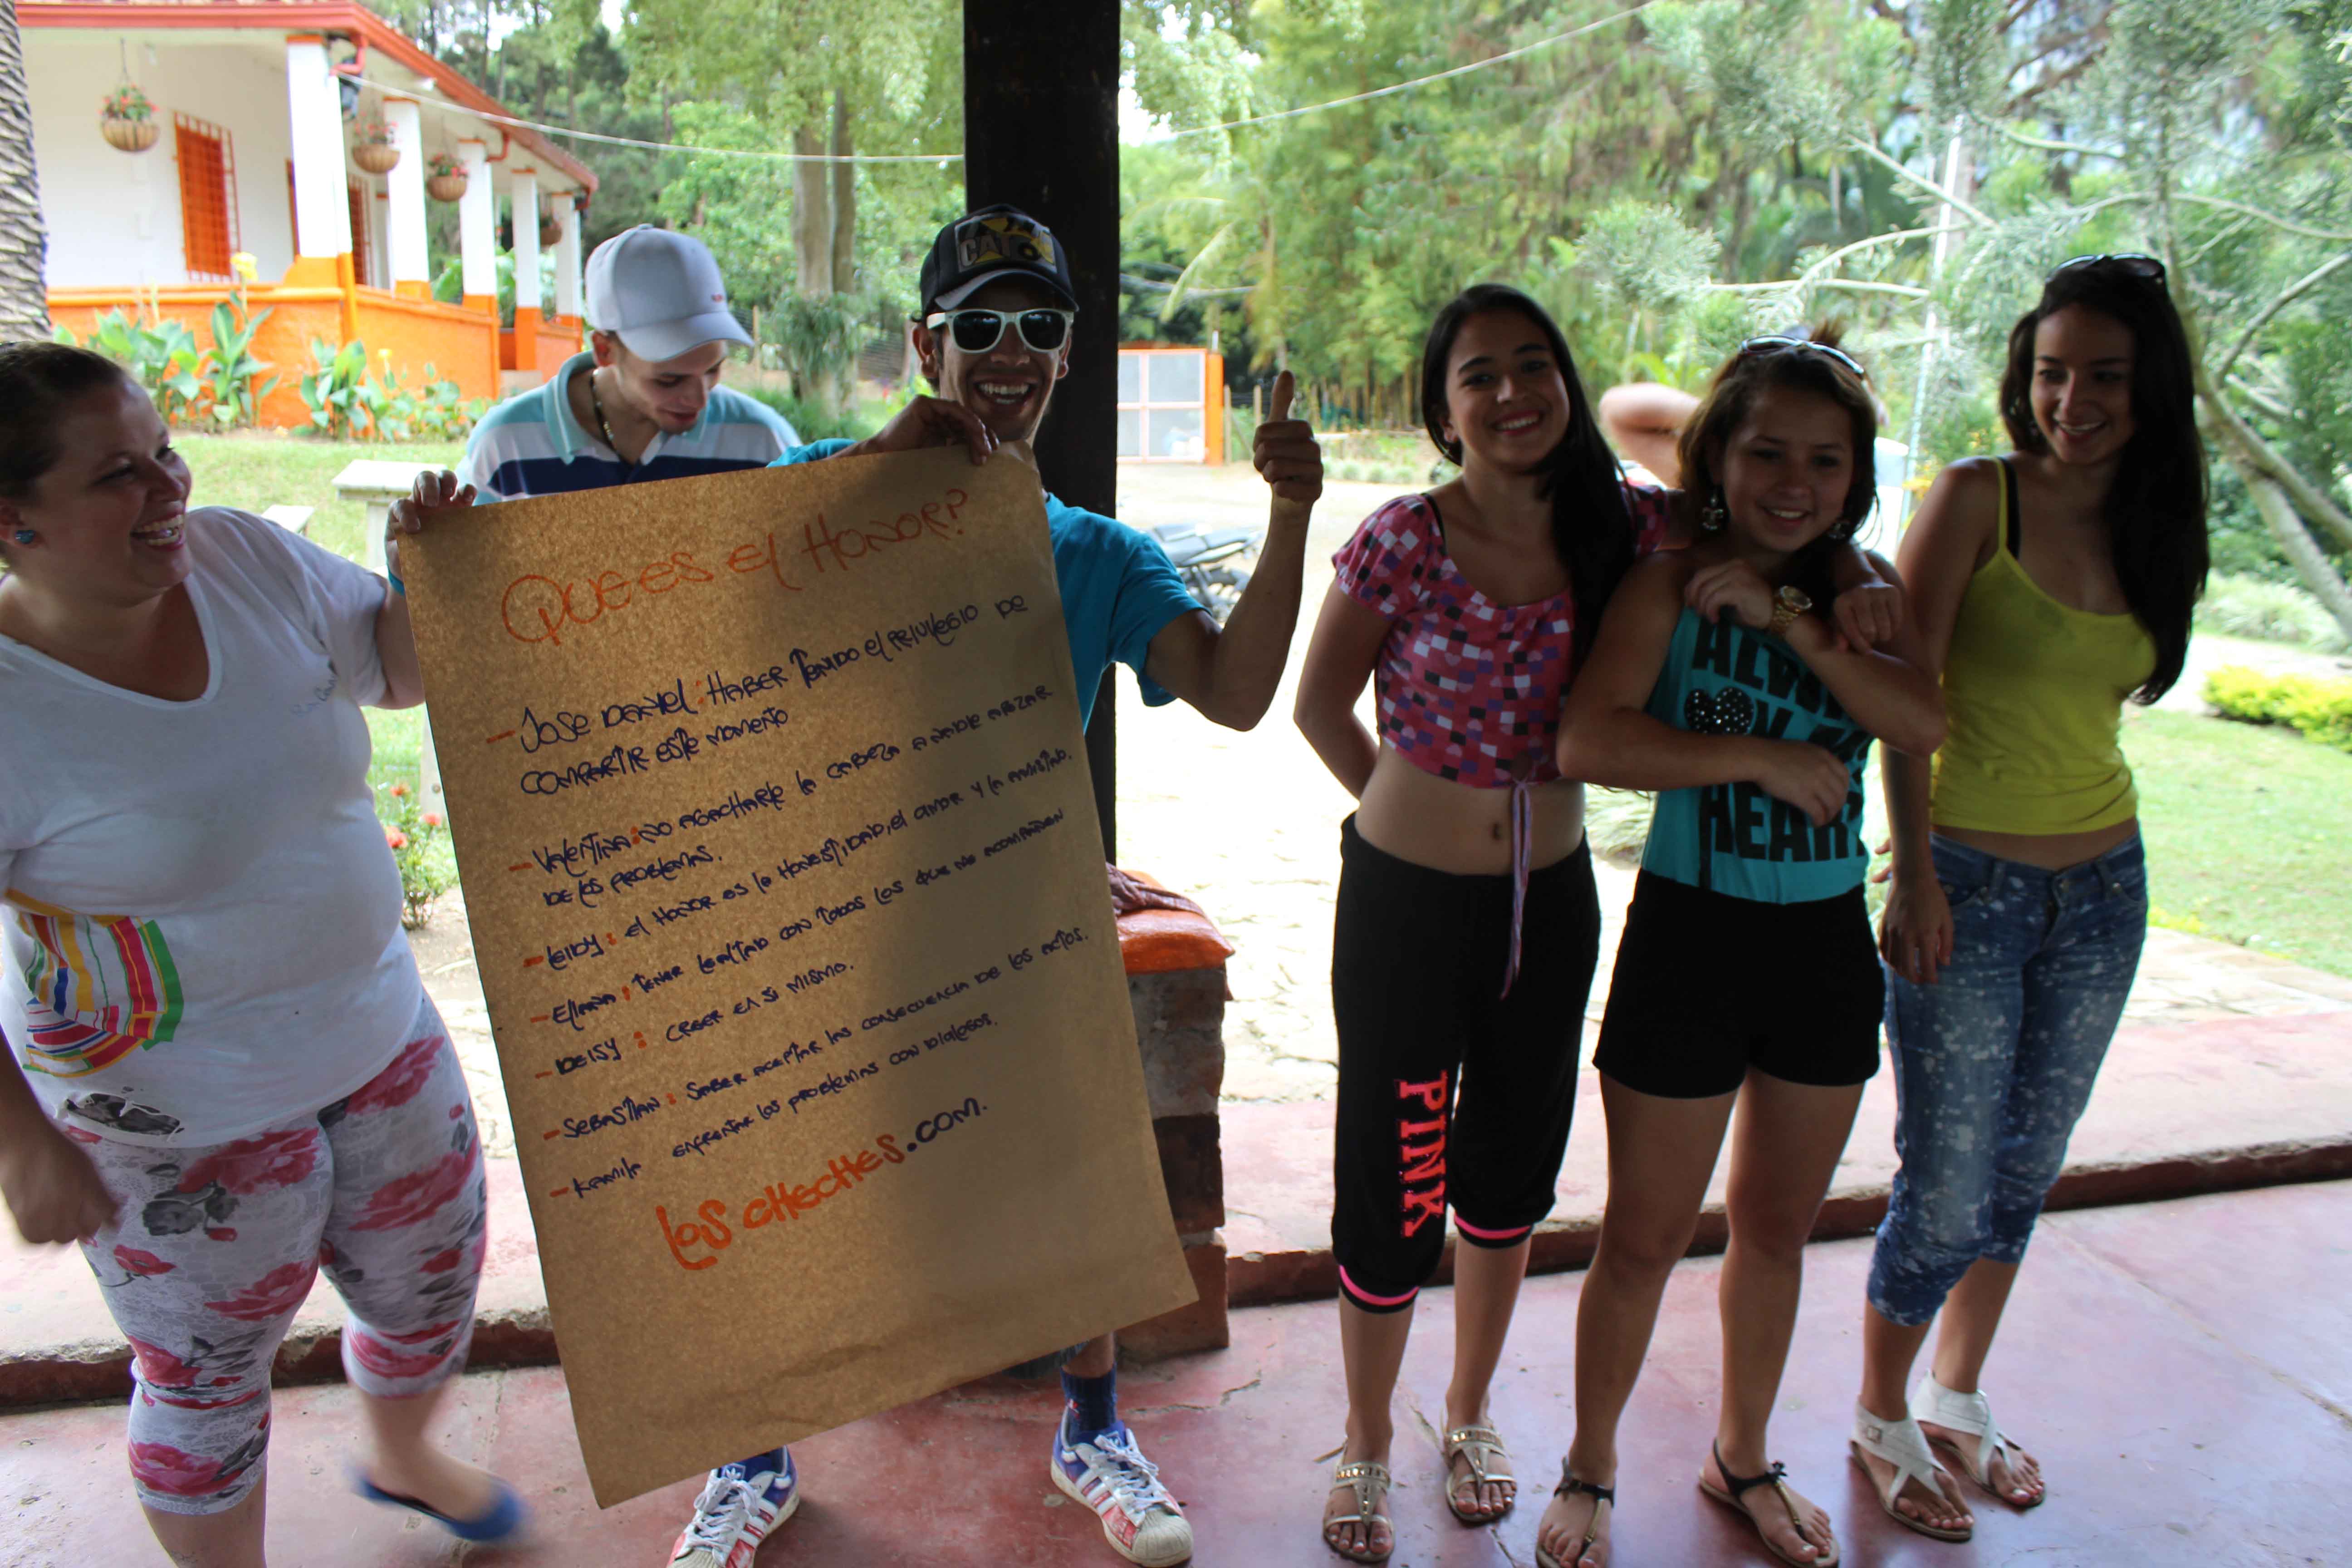 QUE ES El HONOR?
- JOSE DANIEL : HABER TENIDO El PRIVILEGIO DE
COMPARTIR ESTE MOMENTO
- VALENTINA : NO AGACHARLE LA CABEZA A NADIE
DE LOS PROBLEMAS.
- LEIDY : El HONOR ES LA HONESTIDAD, El AMOR Y LA AMISTAD.
- ELIANA : TENER LEALTAD CON TODOS LOS QUE NOS ACOMPAÑEN
- DEISY : CREER EN SI MISMO.
- SEBASTIAN : SABER ACEPTAR LAS CONSECUENCIA DE LOS ACTOS.
- KAMILA ENFRENTAR LOS PROBLEMAS CON DIALOGOS.
LOS CHECHES.COM.
CAT
PINK
MY
HEART